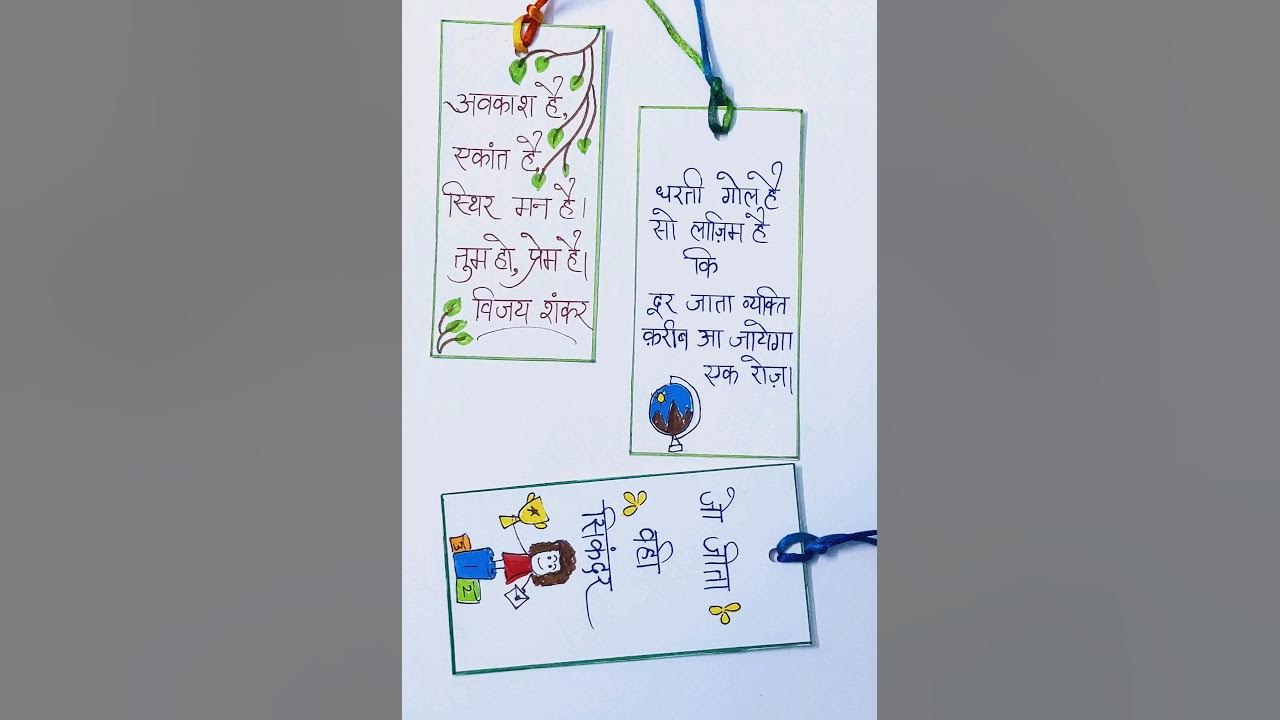 अवकाश है,
एकांत है,
स्थिर मन है।
तुम हो, प्रेम है।
विजय शंकर
धरती गोल है
सो लाज़िम है
कि
दूर जाता व्यक्ति
क़रीब आ जायेगा
एक रोज़।
जो जीता
वही
सिकंदर
3
1
2